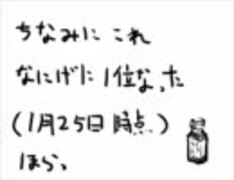 ちなみに これ
なにげに 1位なった
(1月25日 時点.)
ほら、